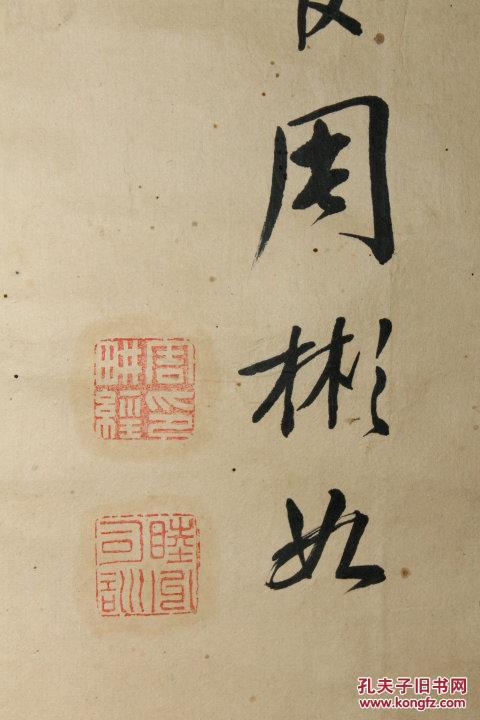 周彬如
周印
經
司訓
孔夫子旧书网
www.kongfz.com